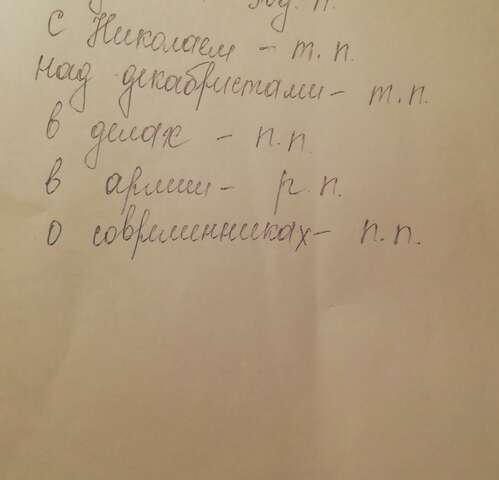 С Николаем - т. п.
над декабристами - т. п.
в делах - п. п.
в армии - р. п.
о современниках - п. п.